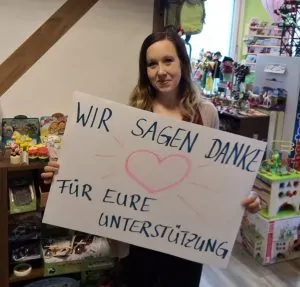 WIR SAGEN DANKE
FÜR EURE
UNTERSTÜTZUNG